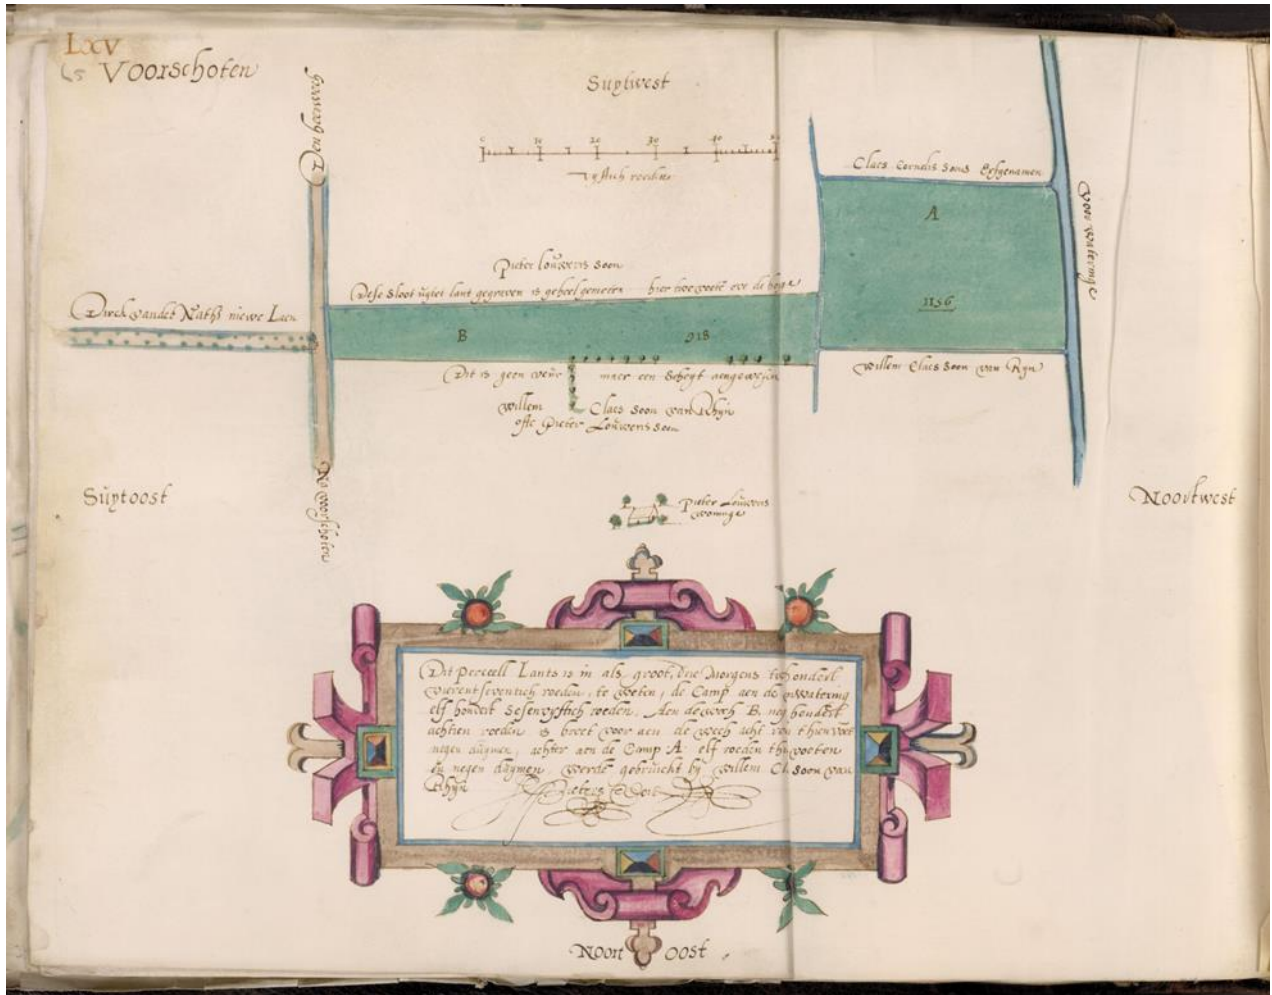 LXV
65 Voorschoten
Suytwest
Den heerwech
0 10 20 30 40 50
vyftich roeden
Claes Cornelis soens Erfgenamen
A
1156
Voor wateringe
Pieter louweris soon
Dese sloot uytet lant gegraven is geheel gemeten hier twe voete over de hoge
Dirck vander Naths niewe Laen
B
918
Dit is geen maer een scheyt aengewesen
willem Claes soon van Rhyn
ofte Pieter Louweris soon
willem Claes soon van Ryn
Suytoost
Na voorschoten
Noortwest
Pieter Louweris
woninge
Dit perceell Lants is in als groot, drie morgens twehondert
vierentseventich roeden, te weten, de Camp aen de wwatering
elf hondert sesenvyftich roeden. Aen de B. neg hondert
achtien roeden is breet voor aen de wech acht roen thien voet
negen duymen, achter aen de Camp A. elf roeden voeten
en negen duymen, werde gebruickt by willem Cl. soon van
Rhyn
Noort oost